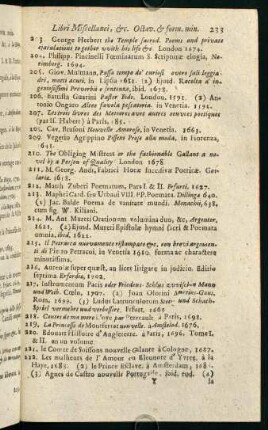 Libri Miscellanei, &c. Octav. & form. min. 233
203 George Herbert the Temple sacred. Poems and private
ejaculations to gether with his life &c. London 1674.
204. Philipp. Pincinelli Fœminarum S. Scriptura elogia, No-
rimberg. 1694.
205. Giov. Ma mann, Passa tempo de' curiosi overo fasti leggia-
dri, motti acuti, in Lipsia 1681.
ingeniosissimi Proverbii & sentenzie, ibid.
206. Battista Guarini Pastor Fido. London, 1591. (2) An-
tonio Ongaro Alceo favola pescatoria. in Venetia. 1591.
207. Lettres livres des Matrones avec autres convers poetiques
par H. Habert) à Paris. 1
208. Car. Rossoni Nouvelle Amorose, in Venetia. 1663.
209. Vegetio Agrippino Pistoti Preso alla moda, in Fiorenza,
1641.
210. The Obliging Mistress or the fashionable Gallant a no-
vel by a Person of Quality London 1678.
211. M. Georg. Andr. Fabricii Horæ succisivæ Poeticæ. Gos-
lariæ. 1658.
212. Matth Zuberi Poematum, Pars I. & II. Erfurti. 1627.
213. Maphei Card. seu Urbani VIII. PP. Poemata. Dilingæ 1640.
(2) Jac. Balde Poema de vanitate mundi. Monachii, 638,
cum fig W. Kiliani.
214. M. Ant Mureti Orationum volumina duo, &c, Argentor.
1621. (2) Ejusd. Mureti Epistolæ hymni sacri & Poemata
omnia, ibid. 1622.
215. Il Petrarca nuovamente ristampato &c. con brevi argomen-
di Pietro Petracci, in Venetia 1610. forma ac charactere
minutissimo.
216. Antonius super quæst. an licet litigare in judicio. Editio
septima Erfordia, 1902.
217. Instrumentum Pacis oder Friedens-Schluß zwischen Rom
und Pfalz
Rom, 1699. (3) Ludus Latrunculorum Stein- und Schach-
spiel vermehret und verbessert. Erfurt. 1661
218. Contes de ma mere l'Oye par Perrault. à Paris, 1698.
219. La Princesse de Montferrat nouvelle. à Amsterd. 1676.
220. Edouard Histoire d'Angleterre. à Paris, 1696. Tome I.
& II. en un volume
221. le Comte de Soissons nouvelle Galante à Cologne, 1687.
222. Les malheurs de l'Amour ou Eleonore d'Yvrée. à la
Haye. 1688. (2) le Prince Esclave, à Amsterdam, 1688.
(3) Agnes de Castro nouvelle Portugaise, ibid. eod. (4)
Y la